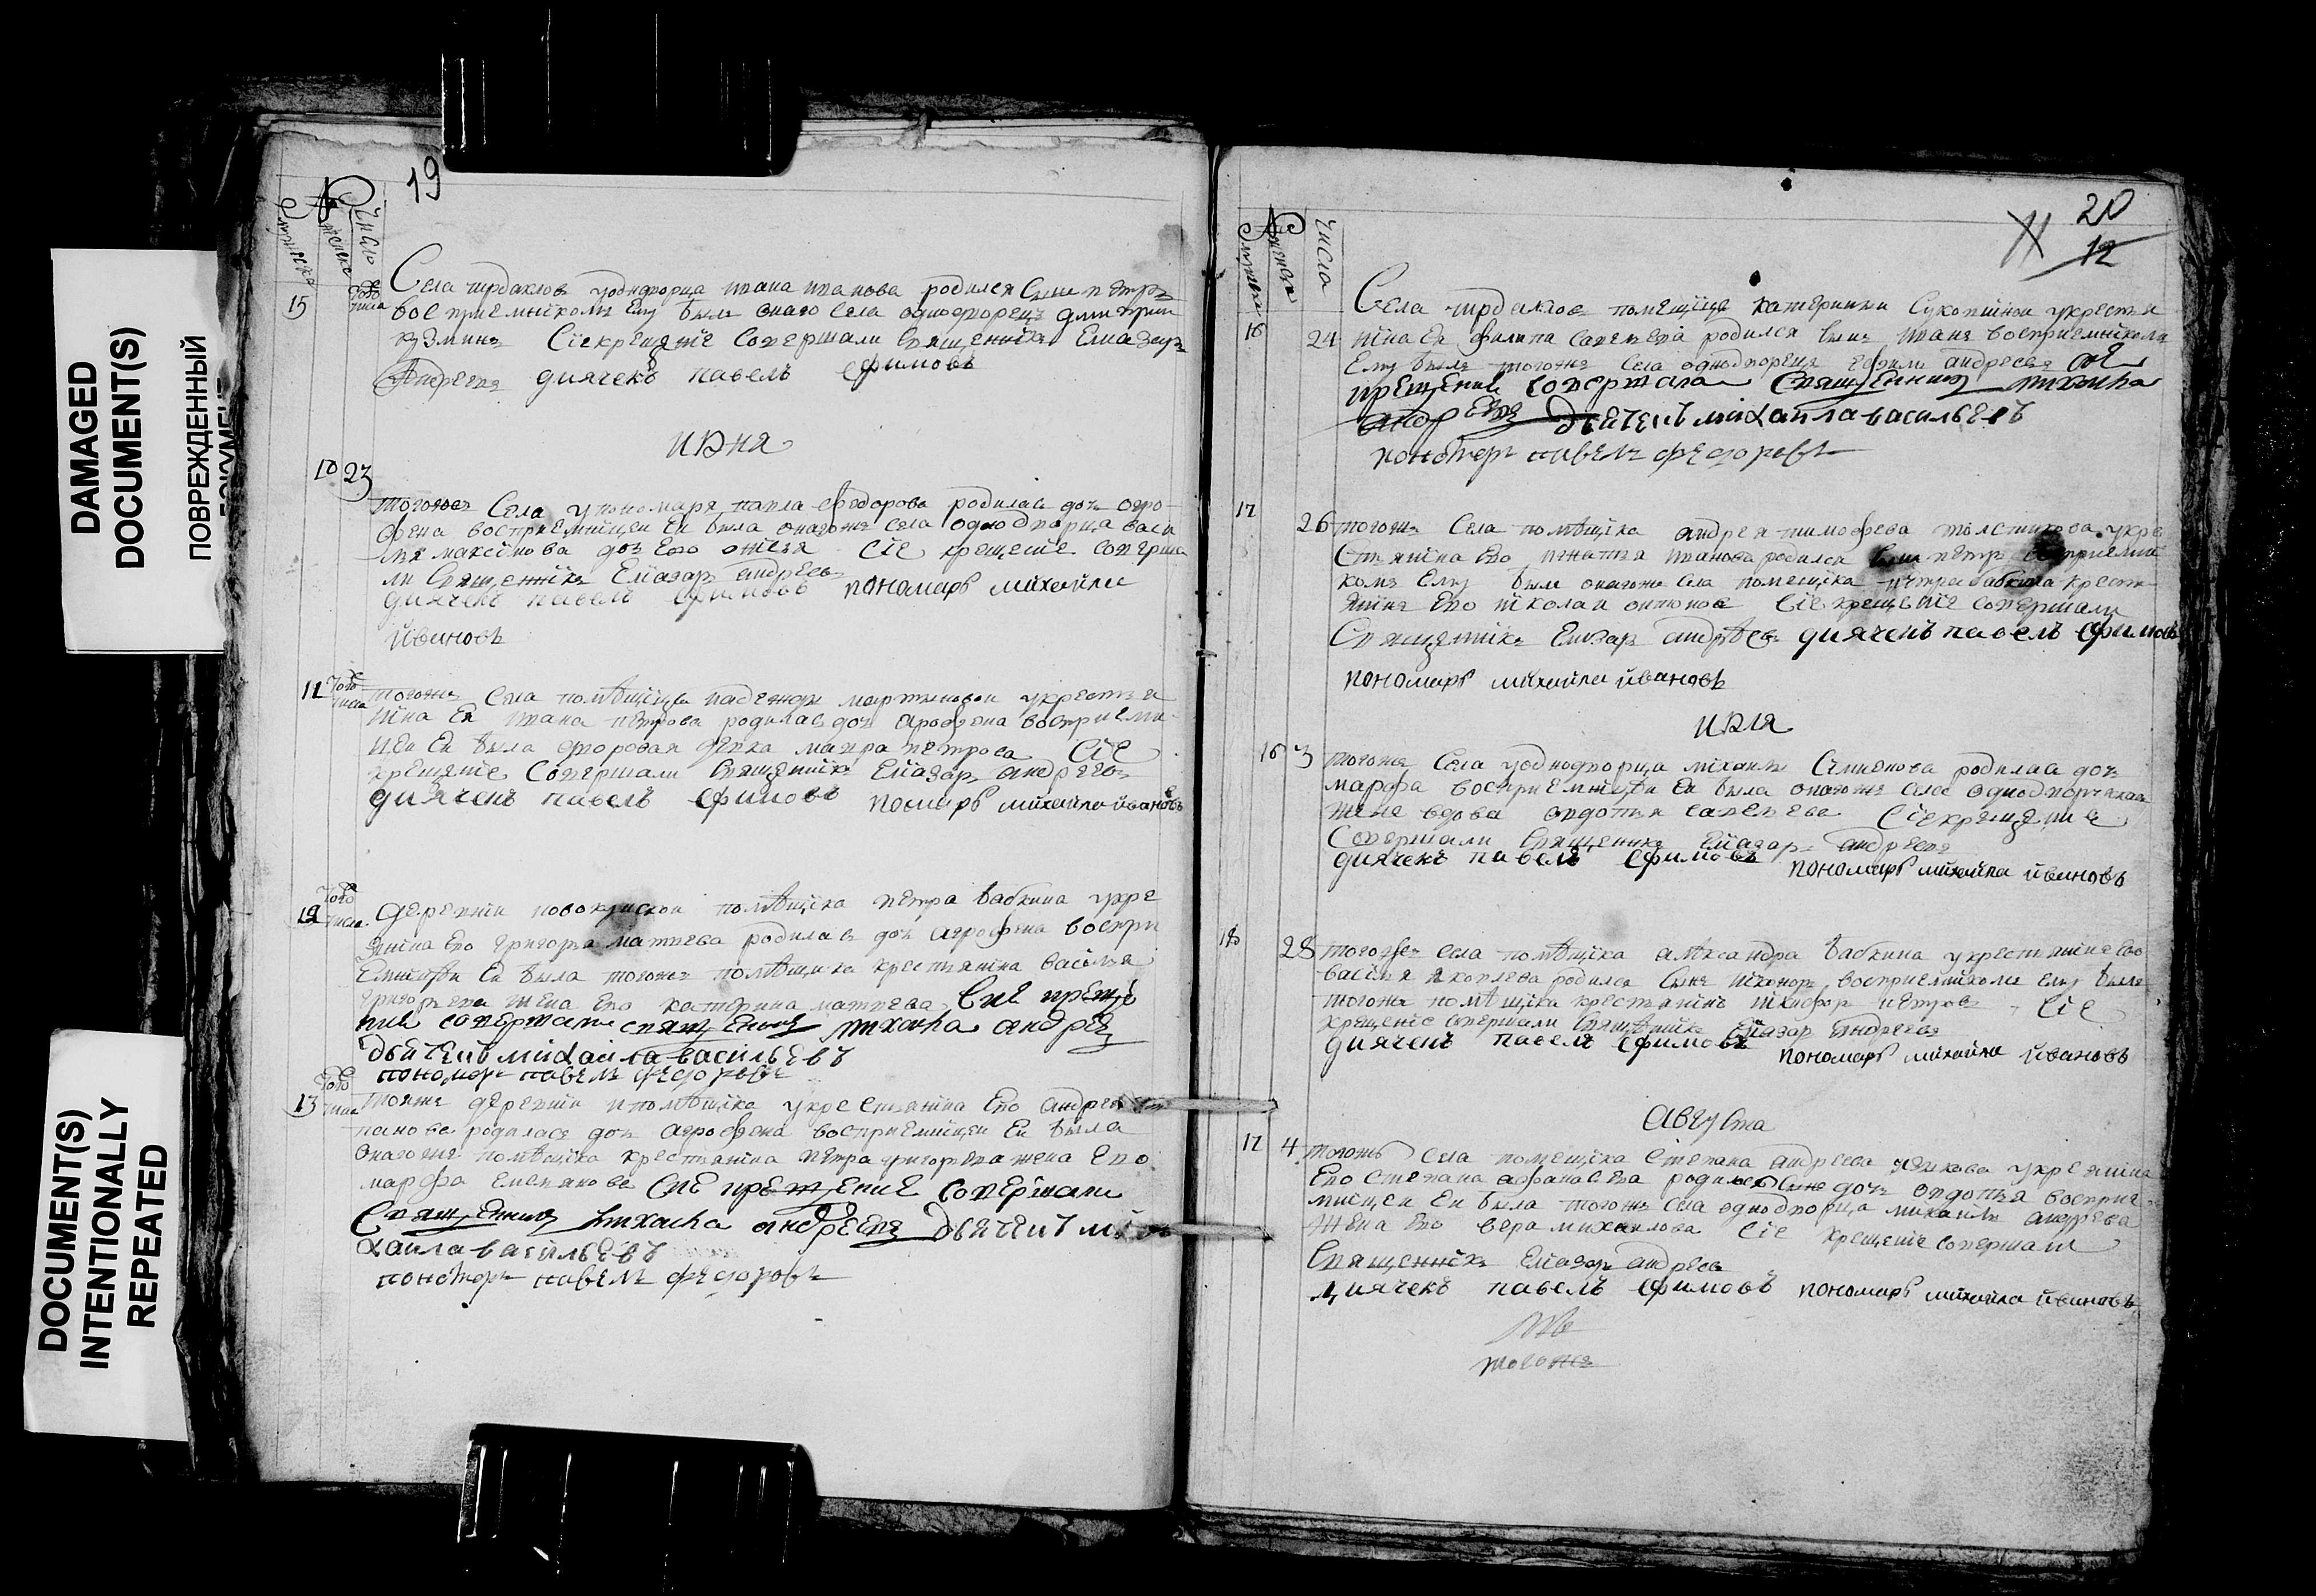 DAMAGED
DOCUMENT(S)
ПОВРЕЖДЕННЫЙ
ДОКУМЕНТ
DOCUMENT(S)
INTENTIONALLY
REPEATED
19
число
15 того числа
Села чурдаклов уоднодворца ивана иванова родился сынъ петръ
восприемникомъ ему былъ оного села однодворецъ дмитрии
кузминъ Сіе крещеніе Совершали Священникъ Елиазаръ
Андреевъ диячекъ павелъ ефимовъ
июня
10 23
тогожъ Села упономаря павла федорова родилась дочь огро
фена восприемницеи еи была оногожъ села однодворца васи
лья максимова дочь его Сіе крещеніе соверша
ли Священникъ Елиазаръ андреевъ
диячекъ павелъ ефимовъ пономарь михайла
йвановъ
11 того числа
тогожъ Села помѣщицы надежды мартыновои укрестья
нина Ея ивана петрова родилась дочь агрофена восприемни
цеи еи была дворовая девка мавра петрова Сіе
крещеніе Совершали Священникъ Елиазаръ андреевъ
диячекъ павелъ ефимовъ пономарь михайла йвановъ
12 того числа
деревни помѣщика петра бабкина укре
янина его григорья матвева родилась дочь агрофена воспри
емницеи еи была тогожъ помѣщика крестьянина василья
григорьева жена его катерина матвева Сие креще
ние совершали священникъ андреевъ
дьячекъ михаила васильевъ
пономарь павелъ федоровъ
13 того числа
тояжъ деревни и помѣщика укрестьянина его андрея
панова родилась дочь агрофена восприемницеи еи была
оногожъ помѣщика крестьянина петра григорьева жена его
марфа степанова Сие крещение совершали
Священникъ андреевъ дьячекъ ми
хаила васильевъ
пономарь павелъ федоровъ
20
12
числа
16 24
Села чурдаклов помещицы катерины укрестья
нина ея филипа савельева родился сынъ иванъ восприемникомъ
ему былъ тогожъ села однодворецъ ефимъ андреевъ сие
крещение совершала Священникъ
андреевъ дьячекъ михаила васильевъ
пономарь павелъ федоровъ
17 26
тогожъ Села помѣщика андрея тимофева толстикова укре
стьянина его игнатья иванова родился сынъ петръ восприемни
комъ ему былъ оногожъ села помещика петра бабкина крест
янинъ его николаи Сіе крещеніе совершали
Священникъ Елизаръ андрѣевъ диячекъ павелъ ефимовъ
пономарь михайла йвановъ
июля
16 3
тогожъ Села уоднодворца михаилы Симионова родилась дочь
марфа восприемницеи еи была оногожъ села однодворческая
жена вдова овдотья савельева Сіе крещение
Совершали Священникъ Елиазаръ андреевъ
диячекъ павелъ ефимовъ пономарь михайла йвановъ
18 28
тогожъ села помѣщика алѣксандра бабкина укрестянина его
василья яковлева родился сынъ никаноръ восприемникомъ ему былъ
тогожъ помѣщика крестьянинъ никифоръ петровъ Сіе
крещеніе совершали Священникъ Елиазаръ андреевъ
диячекъ павелъ ефимовъ пономарь михайла йвановъ
Августа
17 4
тогожъ села помещика степана андреева укреянина
его степана афанасева родилась дочь овдотья восприе
мницеи еи была тогожъ села однодворца михаилы андреева
жена его вера михаилова Сіе крещеніе совершали
Священникъ Елиазаръ андреевъ
диячекъ павелъ ефимовъ пономарь михайла йвановъ
тогожъ